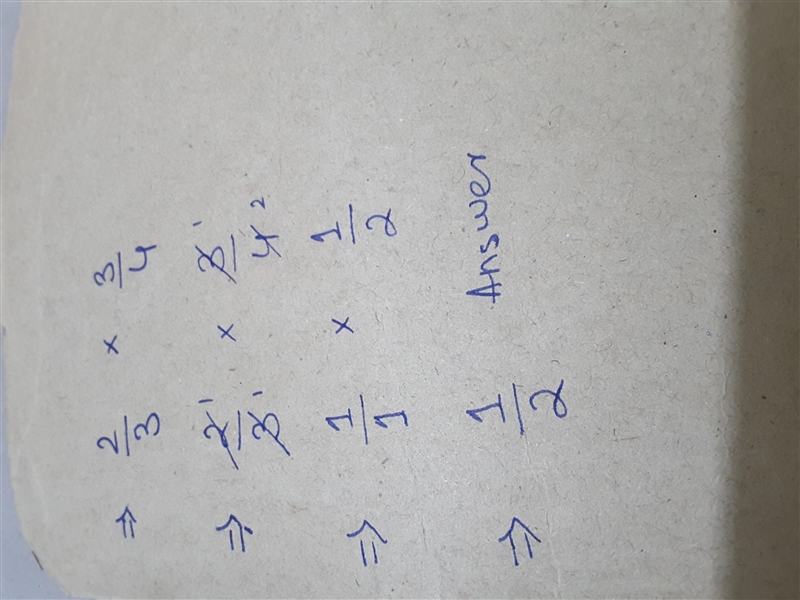 ⇒ 2/3 × 3/4
⇒ 2̸¹/3̸¹ × 3̸¹/4̸²
⇒ 1/1 × 1/2
⇒ 1/2 Answer